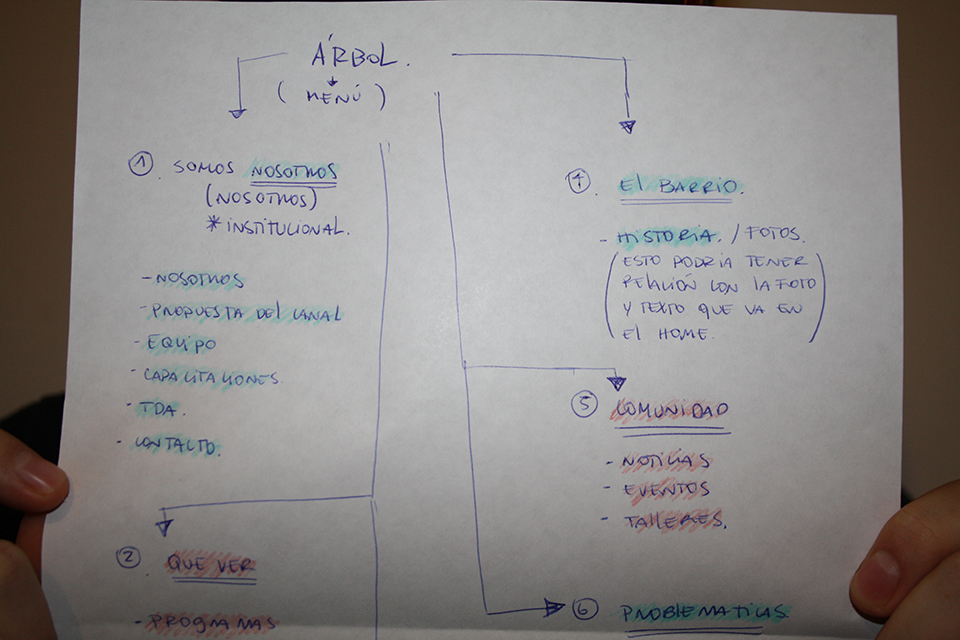 ÁRBOL.
( MENÚ )
1 SOMOS NOSOTROS
(NOSOTROS)
* INSTITUCIONAL.
- NOSOTROS
- PROPUESTA DEL CANAL
- EQUIPO
- CAPACITACIONES.
- TDA.
- CONTACTO.
2. QUE VER
- PROGRAMAS
4. El BARRIO.
- HISTORIA. / FOTOS.
(ESTO PODRIA TENER
RELACIÓN CON LA FOTO
Y TEXTO QUE VA EN
El HOME.)
5 COMUNIDAD
- NOTICIAS
- EVENTOS
- TALLERES.
6 PROBLEMATICAS